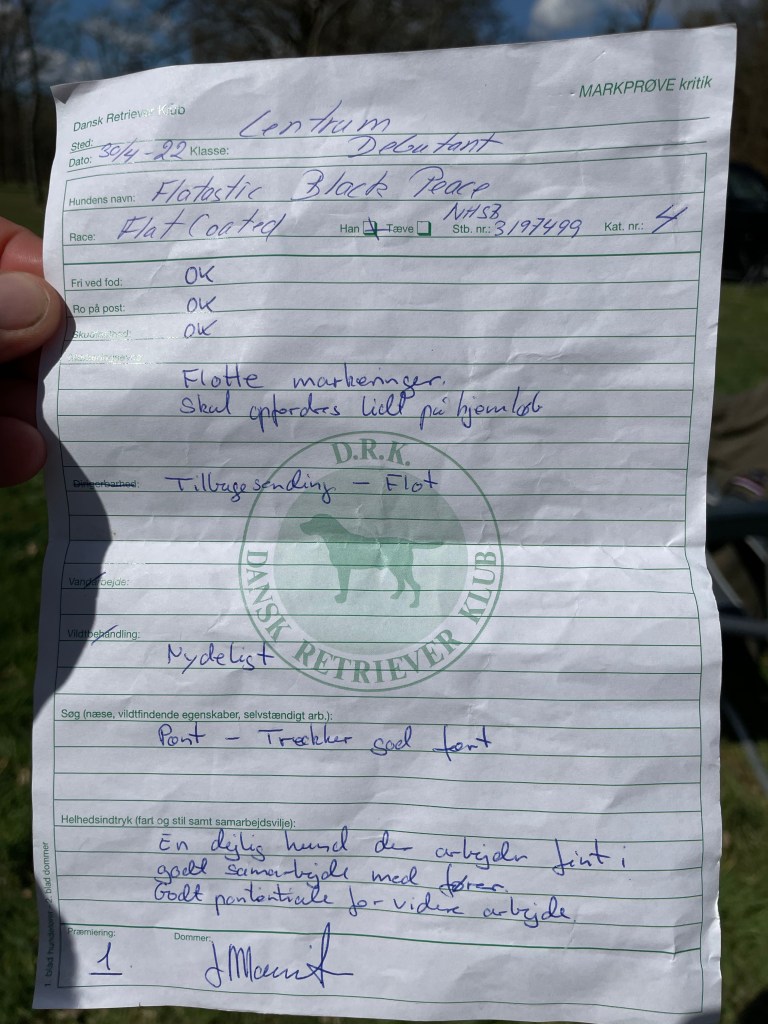 Dansk Retriever Klub
- MARKPRØVE kritik
Sted: Centrum
Dato: 30/4-22 Klasse: Debutant
Hundens navn: Flatastic Black Peace
Race: Flat Coated Han Tæve NHSB Stb. nr.: 3197499 Kat. nr.: 4
Fri ved fod: OK
Ro på post: OK
OK
Flotte markeringer.
Skal opfordres lidt på hjemløb
D.R.K.
Dirigerbarhed: Tilbagesending - Flot
DANSK RETRIEVER KLUB
Vandarbejde:
Vildtbehandling:
Nydeligt
Søg (næse, vildtfindende egenskaber, selvstændigt arb.):
Pænt - Trækker god fært
Helhedsindtryk (fart og stil samt samarbejdsvilje):
En dejlig hund der arbejder fint i
godt samarbejde med fører.
Godt pontentiale for videre arbejde
Præmiering: Dommer:
1